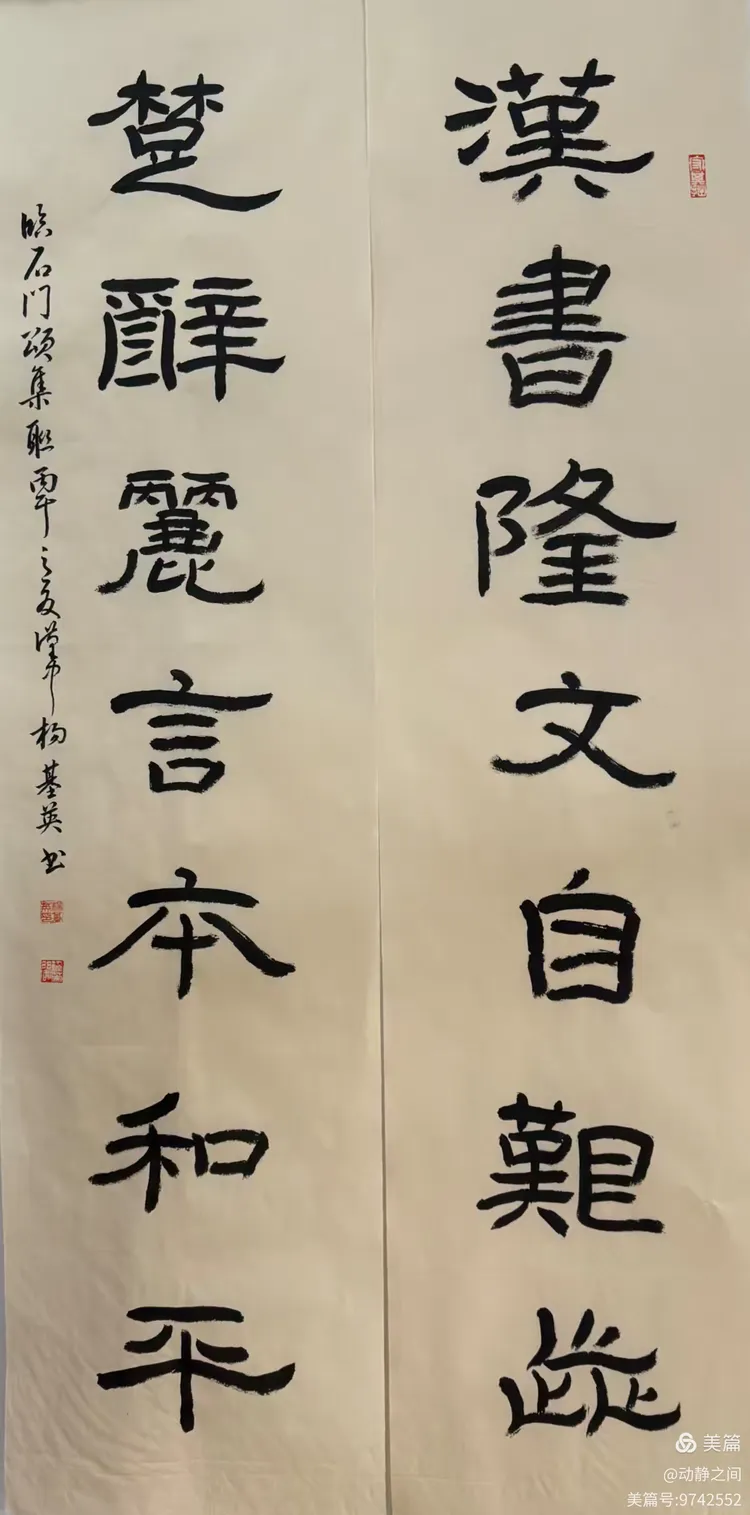 漢書隆文自艱歮
楚辭麗言本和平
临石门颂集联丙午之夏汉中杨基英书
美篇
@动静之间
美篇号:9742552